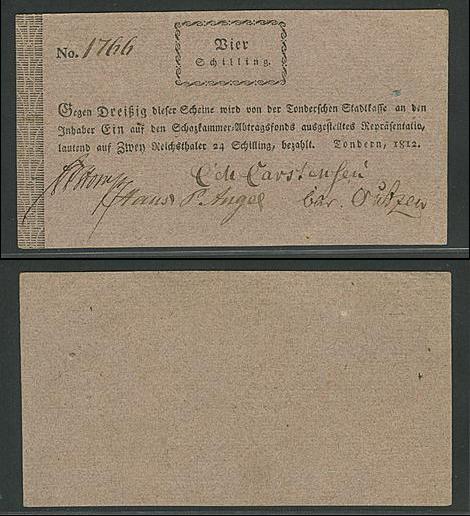 No. 1766
Vier
Schilling.
Gegen Dreißig dieser Scheine wird von der Tondernschen Stadtkasse an den
Inhaber Ein auf den Schazkammer-Abtragsfonds ausgestelltes Repräsentativ,
lautend auf Zwey Reichsthaler 24 Schilling, bezahlt. Tondern, 1812.
Carstensen
Hans P. Angel